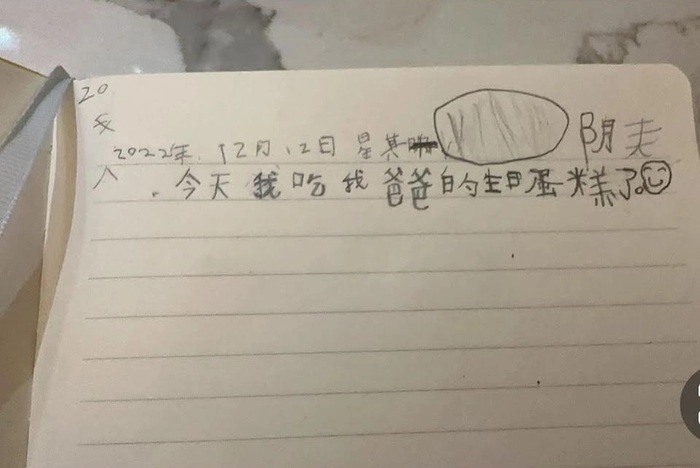 20
我
2022年.12月12日星其 阴天
人.今天我吃我爸爸的生日蛋糕了。